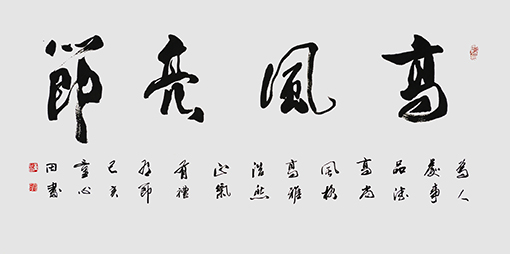 高風亮節
為人
處事
品德
高尚
風格
高雅
浩然
正氣
有禮
有節
己亥
心
田書